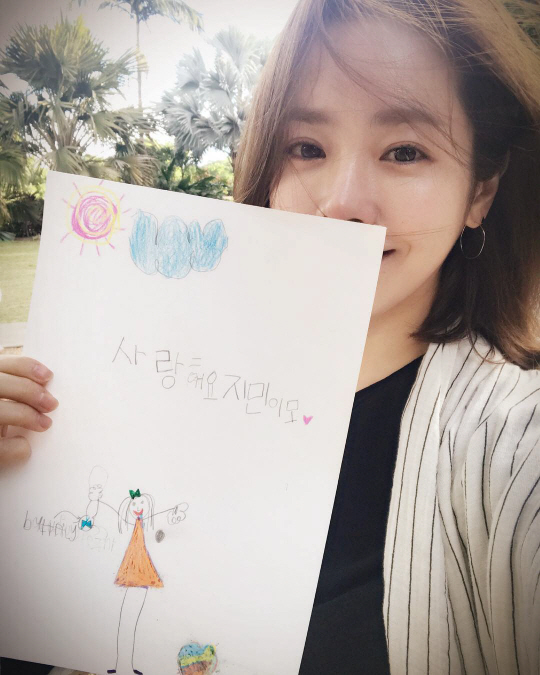 사랑해요 지민이모